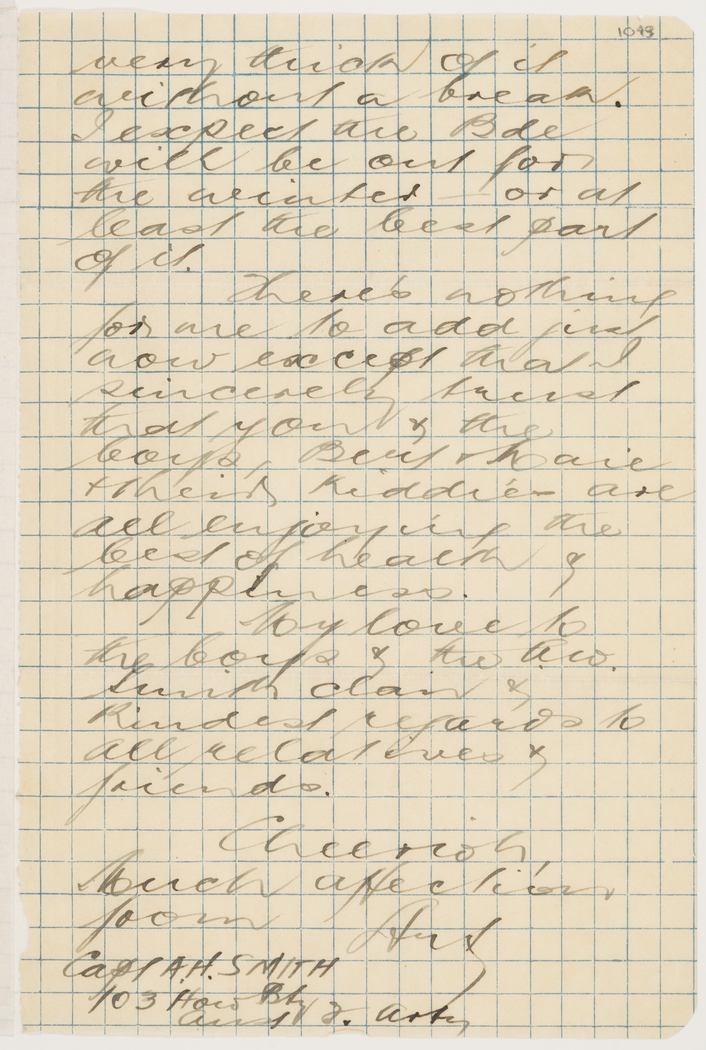 1093
very thick of it
without a break.
I expect the Bde
will be out for
the winter - or at
least the best part
of it.
There's nothing
for me to add just
now except that I
sincerely trust
that you & the
boys, Bert &
& their Kiddies are
all enjoying the
best of health &
happiness.
My love to
the boys & the A.W.
Smith clan &
Kindest regards to
all relatives &
friends.
Cheerioh,
Much affection
from
Capt A.H. SMITH
103 How Bty
Aust F. Arty